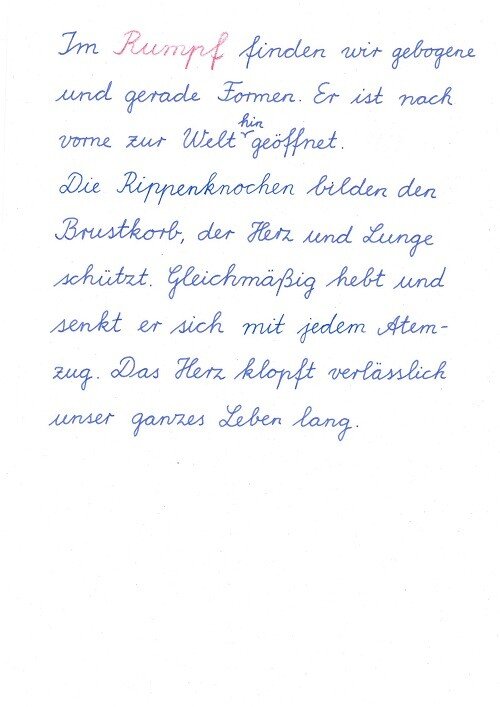 Im Rumpf finden wir gebogene
und gerade Formen. Er ist nach
vorne zur Welt hin geöffnet.
Die Rippenknochen bilden den
Brustkorb, der Herz und Lunge
schützt. Gleichmäßig hebt und
senkt er sich mit jedem Atem-
zug. Das Herz klopft verlässlich
unser ganzes Leben lang.